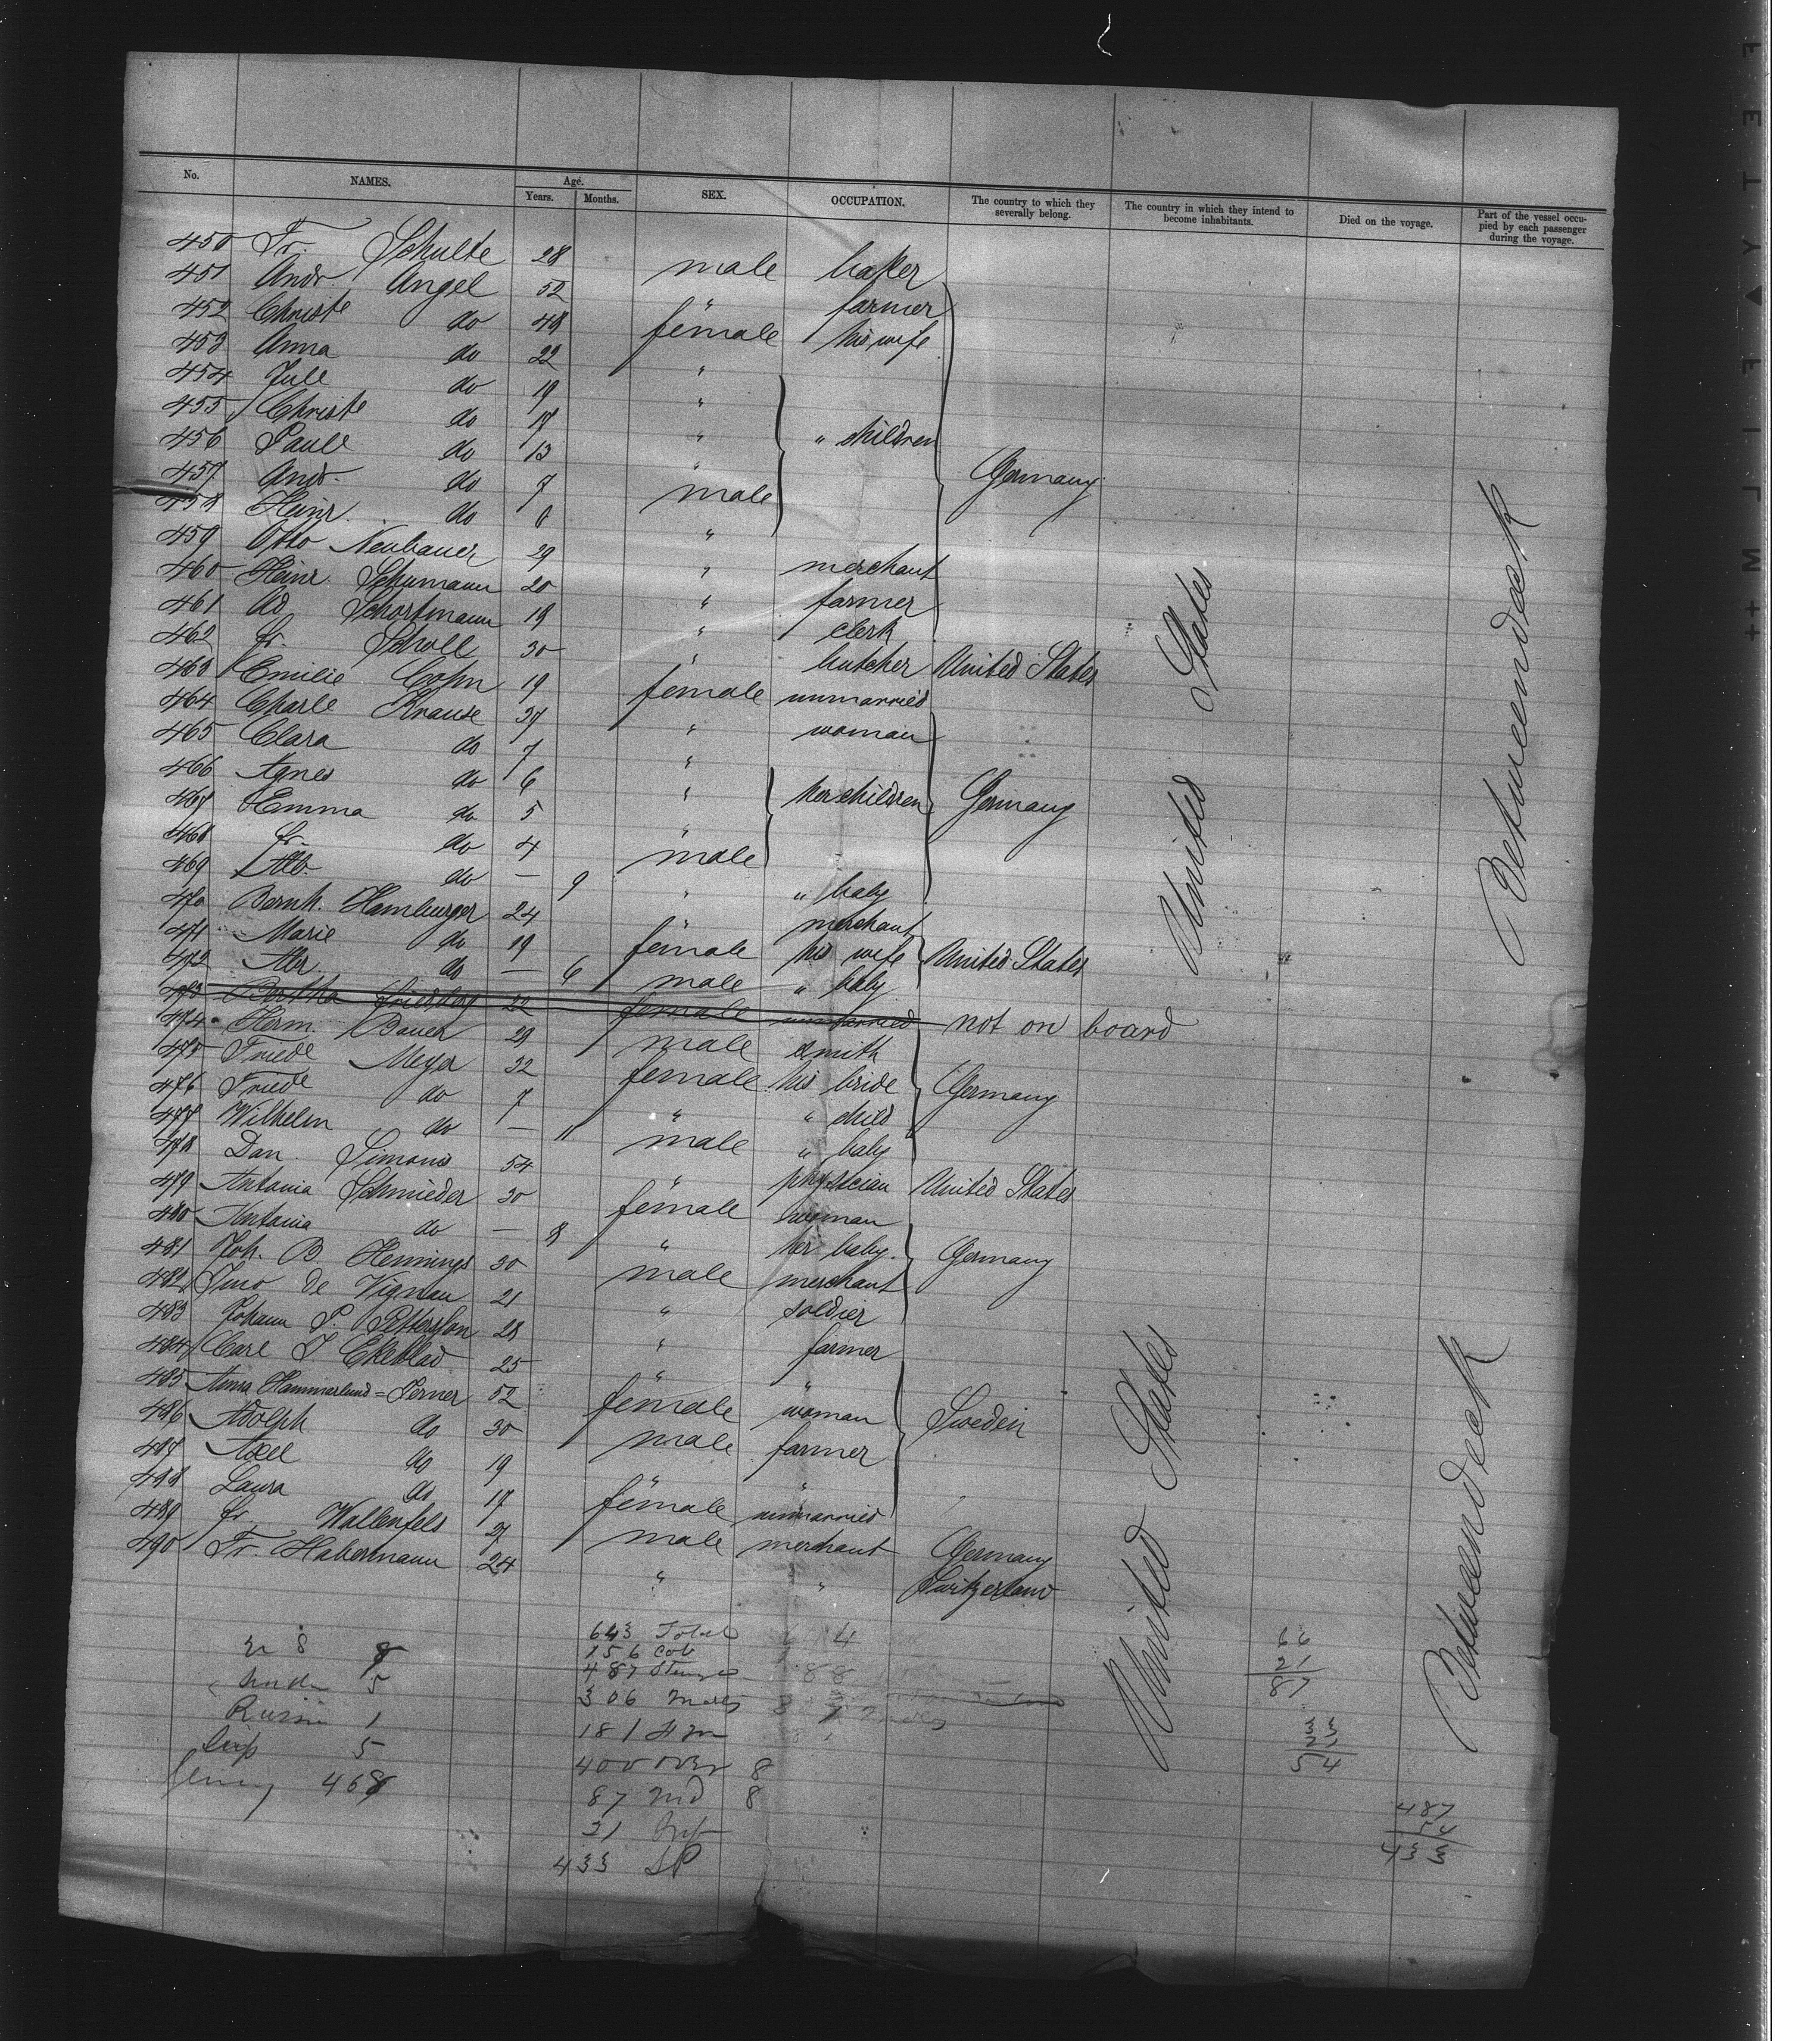 No. NAMES. Age. Years. Months. SEX. OCCUPATION. The country to which they severally belong. The country in which they intend to become inhabitants. Died on the voyage. Part of the vessel occupied by each passenger during the voyage.
450 Fr. Schulte 28 male baker
451 Andr. Angel 52 " farmer
452 Christe do 48 female his wife
453 Anna do 22 "
454 Jule do 19 "
455 Christe do 17 " " children
456 Paule do 13 "
457 Andr. do 7 male Germany
458 Heinr. do 6 "
459 Otto Neubauer 29 " merchant
460 Heinr. Schumann 20 " farmer
461 Ad Schortmann 19 " clerk
462 Fr. Scholl 30 " butcher United States
463 Emilie Cohn 19 female unmarried
464 Charle Krause 37 " woman
465 Clara do 7 "
466 Agnes do 6 " her children Germany
467 Emma do 5 "
468 Fr. do 4 male
469 Alb. do — 9 " " baby
470 Bernh. Hamburger 24 merchant
471 Marie do 19 female his wife United States
472 Alb. do — 6 male " baby
473 Bertha Friedberg 22 female unmarried not on board
474 Herm. Bauer 29 male smith
475 Friede Meyer 32 female his bride Germany
476 Friede do 7 " " child
477 Wilhelm do — 11 male " baby
478 Dan. Simons 54 " physician United States
479 Antonia Schmieder 30 female woman
480 Antonia do — 8 " her baby Germany
481 Joh. B Hennings 30 male merchant
482 Juno de Vignau 21 " soldier
483 Johann P. Petterson 28 " farmer
484 Carl J Ekeblad 25 " "
485 Anna Hammerlund = Perner 52 female woman Sweden
486 Adolph do 30 male farmer
487 Axel do 19 "
488 Laura do 17 female unmarried
489 Fr. Wallenfels 27 male merchant Germany
490 Fr. Habermann 24 " " Switzerland
United States
Betweendeck
United States
Betweendeck
643 Total
156 Cab
487
306 males
181
400 over 8
87 und 8
21
433
8
5
Russia 1
5
468
66
21
87
33
21
54
487
54
433